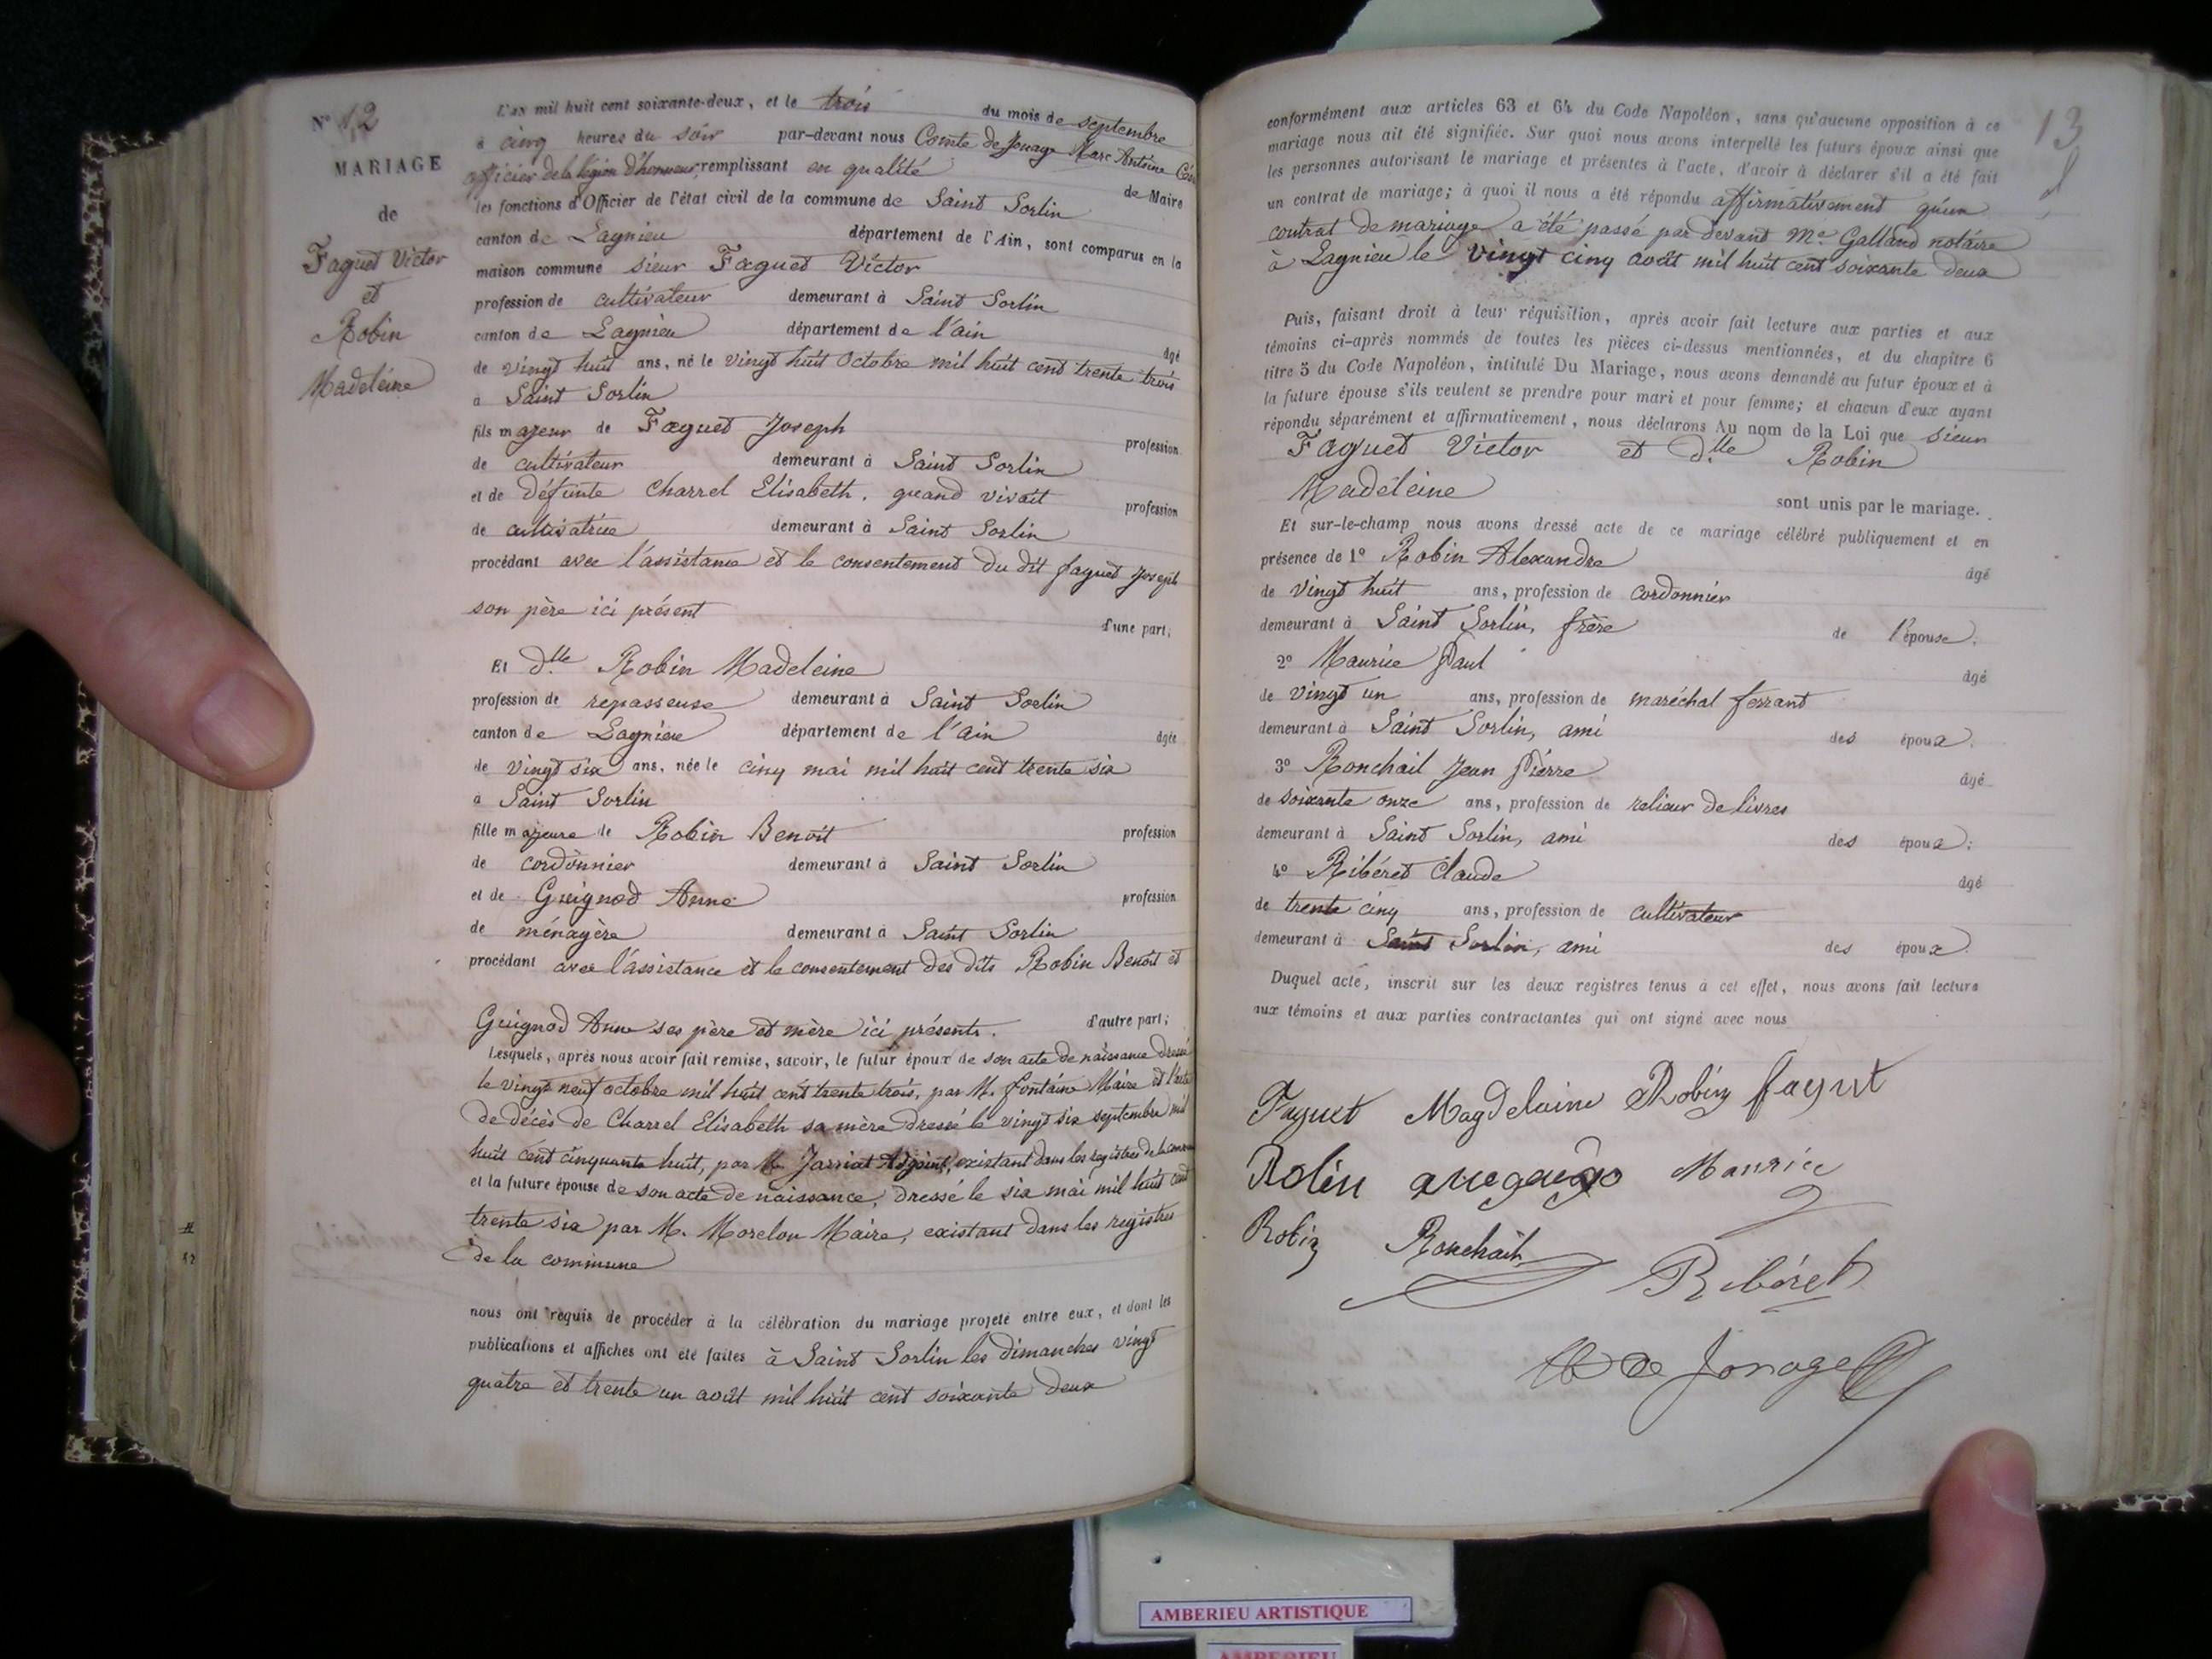 N° 12
MARIAGE
de
Faguet Victor
et
Robin
Madeleine
L'an mil huit cent soixante-deux, et le trois du mois de septembre
à cinq heures du soir par-devant nous Comte de Jonage Marc Antoine
officier de la légion d'honneur, remplissant en qualité de Maire
les fonctions d'Officier de l'état civil de la commune de Saint Sorlin
canton de Lagnieu département de l'Ain, sont comparus en la
maison commune sieur Faguet Victor
profession de cultivateur demeurant à Saint Sorlin
canton de Lagnieu département de l'ain âgé
de vingt huit ans, né le vingt huit Octobre mil huit cent trente trois
à Saint Sorlin
fils majeur de Faguet Joseph profession
de cultivateur demeurant à Saint Sorlin
et de défunte Charrel Elisabeth, quand vivait profession
de cultivatrice demeurant à Saint Sorlin
procédant avec l'assistance et le consentement du dit faguet Joseph
son père ici présent d'une part;
Et dlle Robin Madeleine
profession de repasseuse demeurant à Saint Sorlin
canton de Lagnieu département de l'ain âgée
de vingt six ans, née le cinq mai mil huit cent trente six
à Saint Sorlin
fille majeure de Robin Benoit profession
de cordonnier demeurant à Saint Sorlin
et de Guignod Anne profession
de ménagère demeurant à Saint Sorlin
procédant avec l'assistance et le consentement des dits Robin Benoit et
Guignod Anne ses père et mère ici présents. d'autre part;
Lesquels, après nous avoir fait remise, savoir, le futur époux de son acte de naissance dressé
le vingt neuf octobre mil huit cent trente trois, par M. fontaine Maire et l'acte
de décès de Charrel Elisabeth sa mère dressé le vingt six septembre mil
huit cent cinquante huit, par M. Jarriat Adjoint, existant dans les registres de la commune
et la future épouse de son acte de naissance, dressé le six mai mil huit cent
trente six par M. Morelon Maire, existant dans les registres
de la commune
nous ont requis de procéder à la célébration du mariage projeté entre eux, et dont les
publications et affiches ont été faites à Saint Sorlin les dimanches vingt
quatre et trente un août mil huit cent soixante deux
13
conformément aux articles 63 et 64 du Code Napoléon, sans qu'aucune opposition à ce
mariage nous ait été signifiée. Sur quoi nous avons interpellé les futurs époux ainsi que
les personnes autorisant le mariage et présentes à l'acte, d'avoir à déclarer s'il a été fait
un contrat de mariage; à quoi il nous a été répondu affirmativement qu'un
contrat de mariage a été passé par devant Me Galland notaire
à Lagnieu le vingt cinq août mil huit cent soixante deux
Puis, faisant droit à leur réquisition, après avoir fait lecture aux parties et aux
témoins ci-après nommés de toutes les pièces ci-dessus mentionnées, et du chapitre 6
titre 5 du Code Napoléon, intitulé Du Mariage, nous avons demandé au futur époux et à
la future épouse s'ils veulent se prendre pour mari et pour femme; et chacun d'eux ayant
répondu séparément et affirmativement, nous déclarons Au nom de la Loi que sieur
Faguet Victor et dlle Robin
Madeleine sont unis par le mariage.
Et sur-le-champ nous avons dressé acte de ce mariage célébré publiquement et en
présence de 1° Robin Alexandre âgé
de vingt huit ans, profession de cordonnier
demeurant à Saint Sorlin, frère de l'épouse.
2° Maurice Paul âgé
de vingt un ans, profession de maréchal ferrant
demeurant à Saint Sorlin, ami des époux.
3° Ronchail Jean Pierre âgé
de soixante onze ans, profession de relieur de livres
demeurant à Saint Sorlin, ami des époux;
4° Ribéret Claude âgé
de trente cinq ans, profession de cultivateur
demeurant à Saint Sorlin, ami des époux.
Duquel acte, inscrit sur les deux registres tenus à cet effet, nous avons fait lecture
aux témoins et aux parties contractantes qui ont signé avec nous
Faguet Magdelaine Robin faguet
Robin Maurice
Robin Ronchail Ribéret
de Jonage
AMBERIEU ARTISTIQUE
AMBERIEU